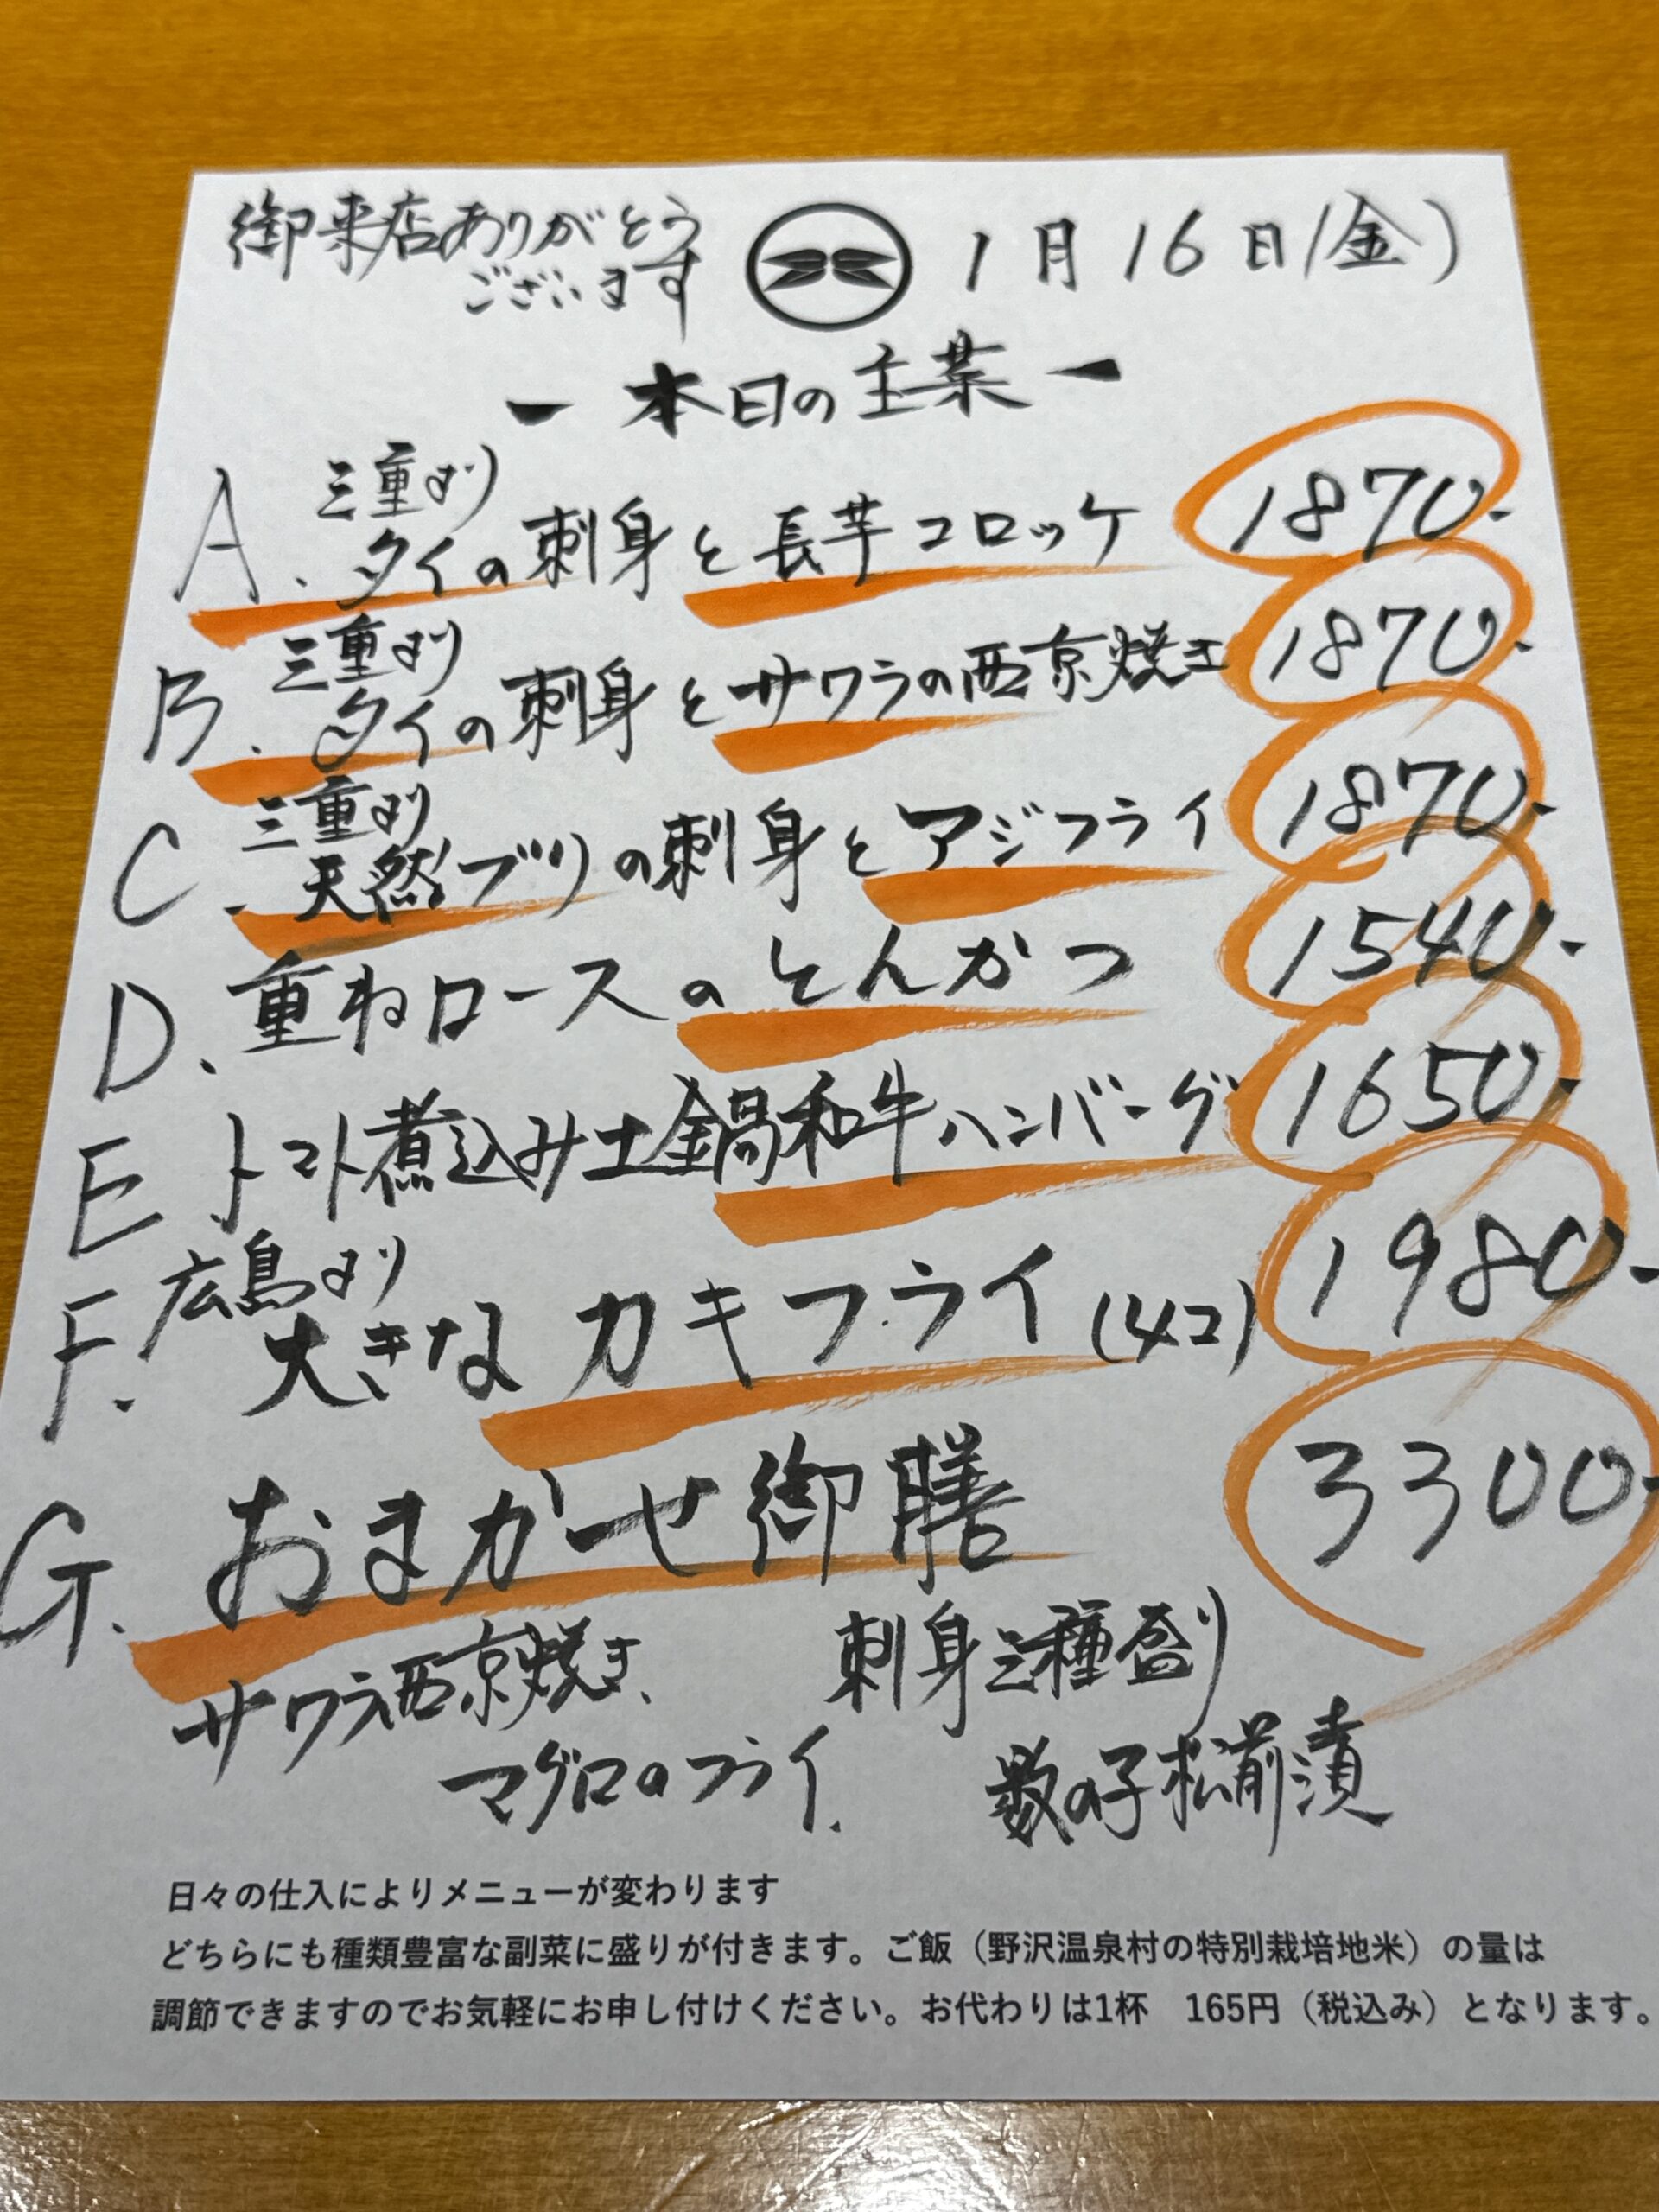 御来店ありがとう
ございます
1月16日(金)
ー 本日の主菜 ー
三重より
A. タイの刺身と長芋コロッケ 1870-
三重より
B. タイの刺身とサワラの西京焼き 1870-
三重より
C. 天然ブリの刺身とアジフライ 1870-
D. 重ねロースのとんかつ 1540-
E トマト煮込み土鍋和牛ハンバーグ 1650-
広島より
F. 大きなカキフライ(4コ) 1980-
G. おまかせ御膳 3300-
サワラ西京焼き、 刺身三種盛り
マグロのフライ、 数の子松前漬
日々の仕入によりメニューが変わります
どちらにも種類豊富な副菜に盛りが付きます。ご飯（野沢温泉村の特別栽培地米）の量は
調節できますのでお気軽にお申し付けください。お代わりは1杯 165円（税込み）となります。